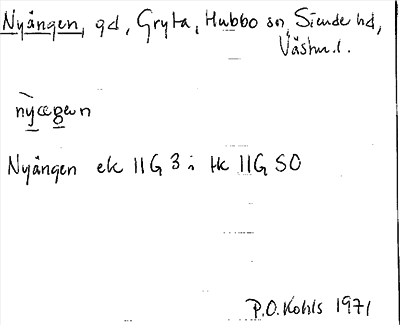 Nyängen, gd, Gryta, Hubbo sn, Siende hd,
Västm.l.
nỳægen
Nyängen ek 11G 3 i tk 11G SO
P.O. Kohls 1971